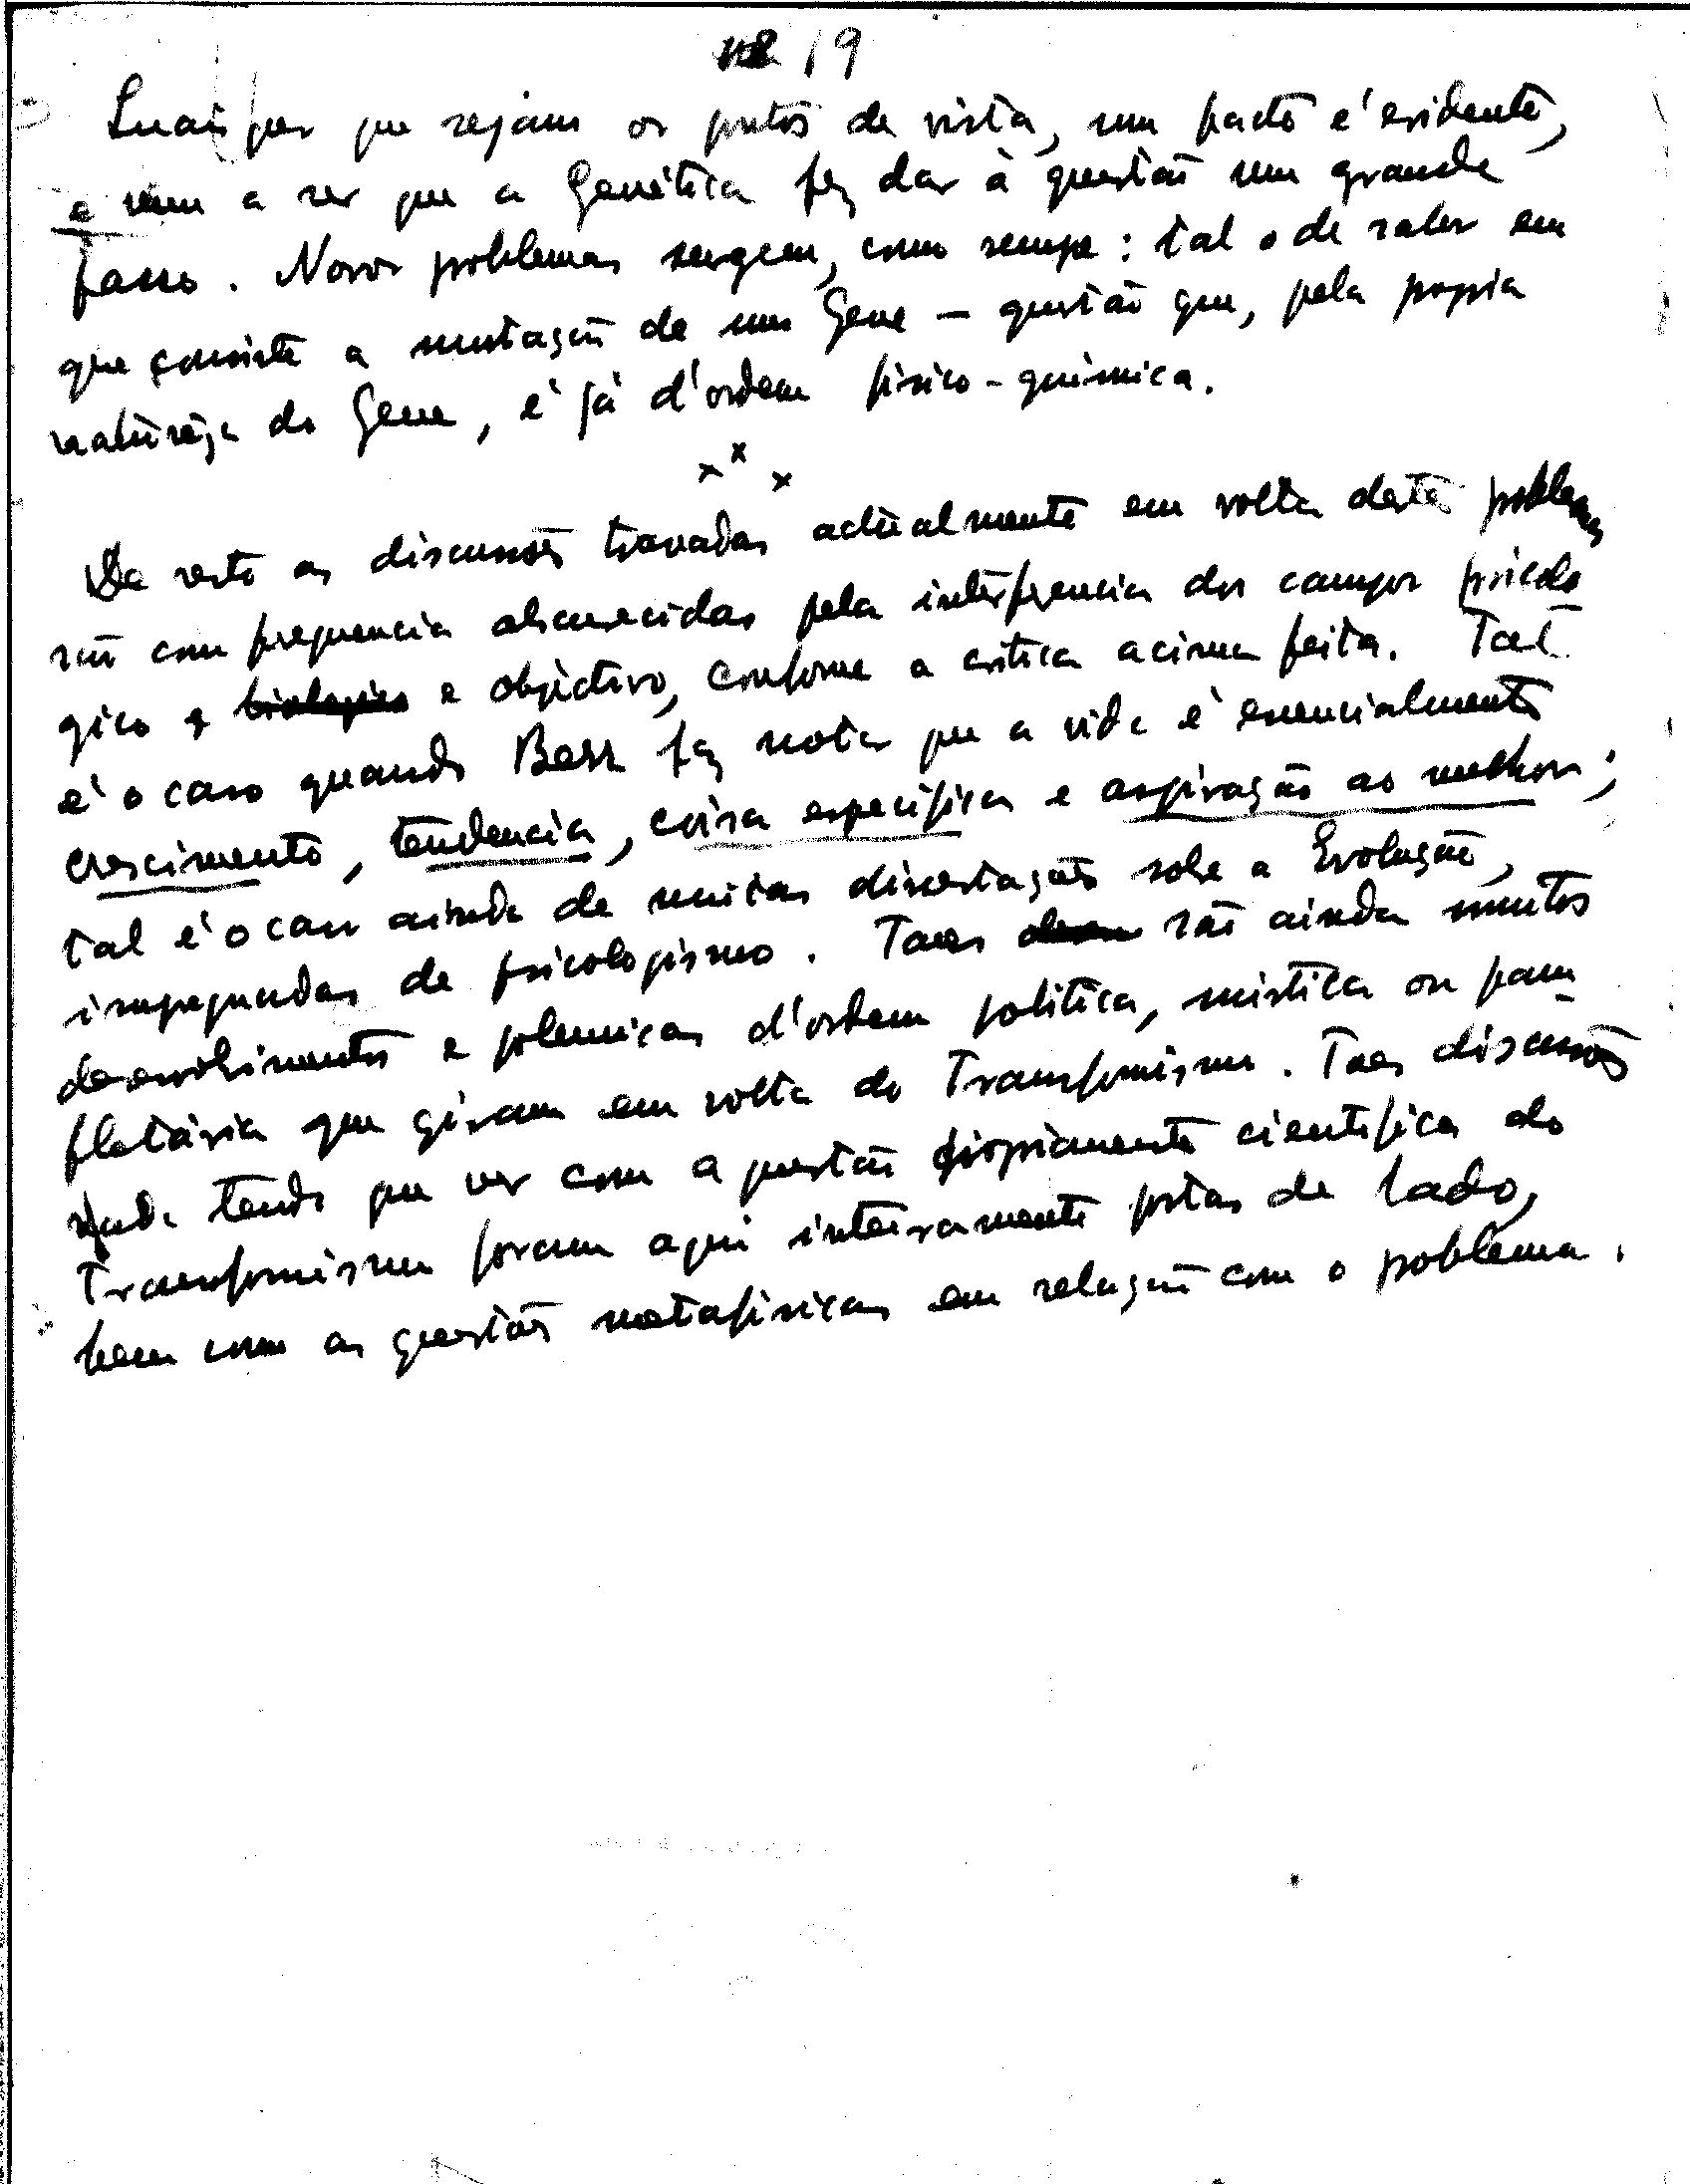 19
Quaisquer que sejam os pontos de vista, um facto é evidente,
e vem a ser que a Genética fez dar à questão um grande
passo. Novos problemas surgem, como sempre: tal o de saber em
que consiste a mutação de um Gene – questão que, pela propria
natureza do Gene, é já d'ordem fisico-química.
x x x
De resto as discussões travadas actualmente em volta deste problema
são com frequencia obscurecidas pela interferencia dos campos psicolo
gico e biologico e objectivo, conforme a critica acima feita. Tal
é o caso quando fez notar que a vida é essencialmente
crescimento, tendencia, coisa especifica e aspiração ao melhor;
tal é o caso ainda de muitas dissertações sobre a Evolução,
impregnadas de psicologismo. Taes são ainda muitos
desenvolvimentos e polemicas d'ordem politica, mistica ou pam
fletária que giram em volta do Transformismo. Taes discussões
nada tendo que ver com a questão propriamente cientifica do
Transformismo foram aqui inteiramente postas de lado,
bem como as questões metafisicas em relação com o problema.